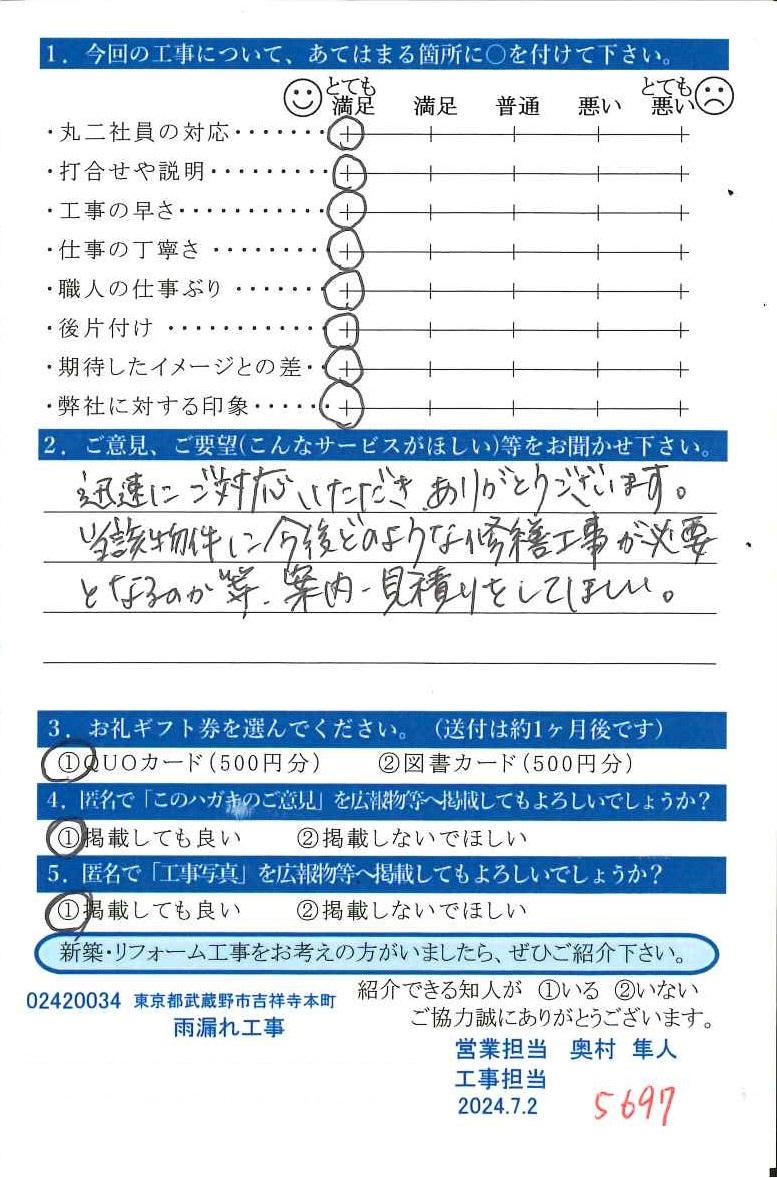 1．今回の工事について、あてはまる箇所に○を付けて下さい。
とても満足 満足 普通 悪い とても悪い
・丸二社員の対応・・・・・・・
・打合せや説明・・・・・・・・・
・工事の早さ・・・・・・・・・・・
・仕事の丁寧さ ・・・・・・・・
・職人の仕事ぶり ・・・・・・
・後片付け ・・・・・・・・・・・
・期待したイメージとの差・・
・弊社に対する印象・・・・・
2．ご意見、ご要望(こんなサービスがほしい)等をお聞かせ下さい。
迅速にご対応いただきありがとうございます。
当該物件に今後どのような修繕工事が必要
となるのか等、案内・見積りをしてほしい。
3．お礼ギフト券を選んでください。（送付は約1ヶ月後です）
①QUOカード(500円分) ②図書カード(500円分)
4．匿名で「このハガキのご意見」を広報物等へ掲載してもよろしいでしょうか？
①掲載しても良い ②掲載しないでほしい
5．匿名で「工事写真」を広報物等へ掲載してもよろしいでしょうか？
①掲載しても良い ②掲載しないでほしい
新築・リフォーム工事をお考えの方がいましたら、ぜひご紹介下さい。
紹介できる知人が ①いる ②いない
02420034 東京都武蔵野市吉祥寺本町
ご協力誠にありがとうございます。
雨漏れ工事
営業担当 奥村 隼人
工事担当
2024.7.2
5697